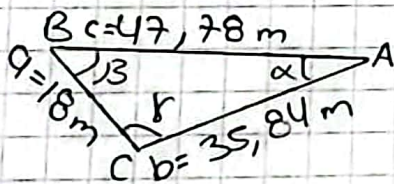 B c=47,78 m
A
β
α
a=18m
γ
C b=35,84 m